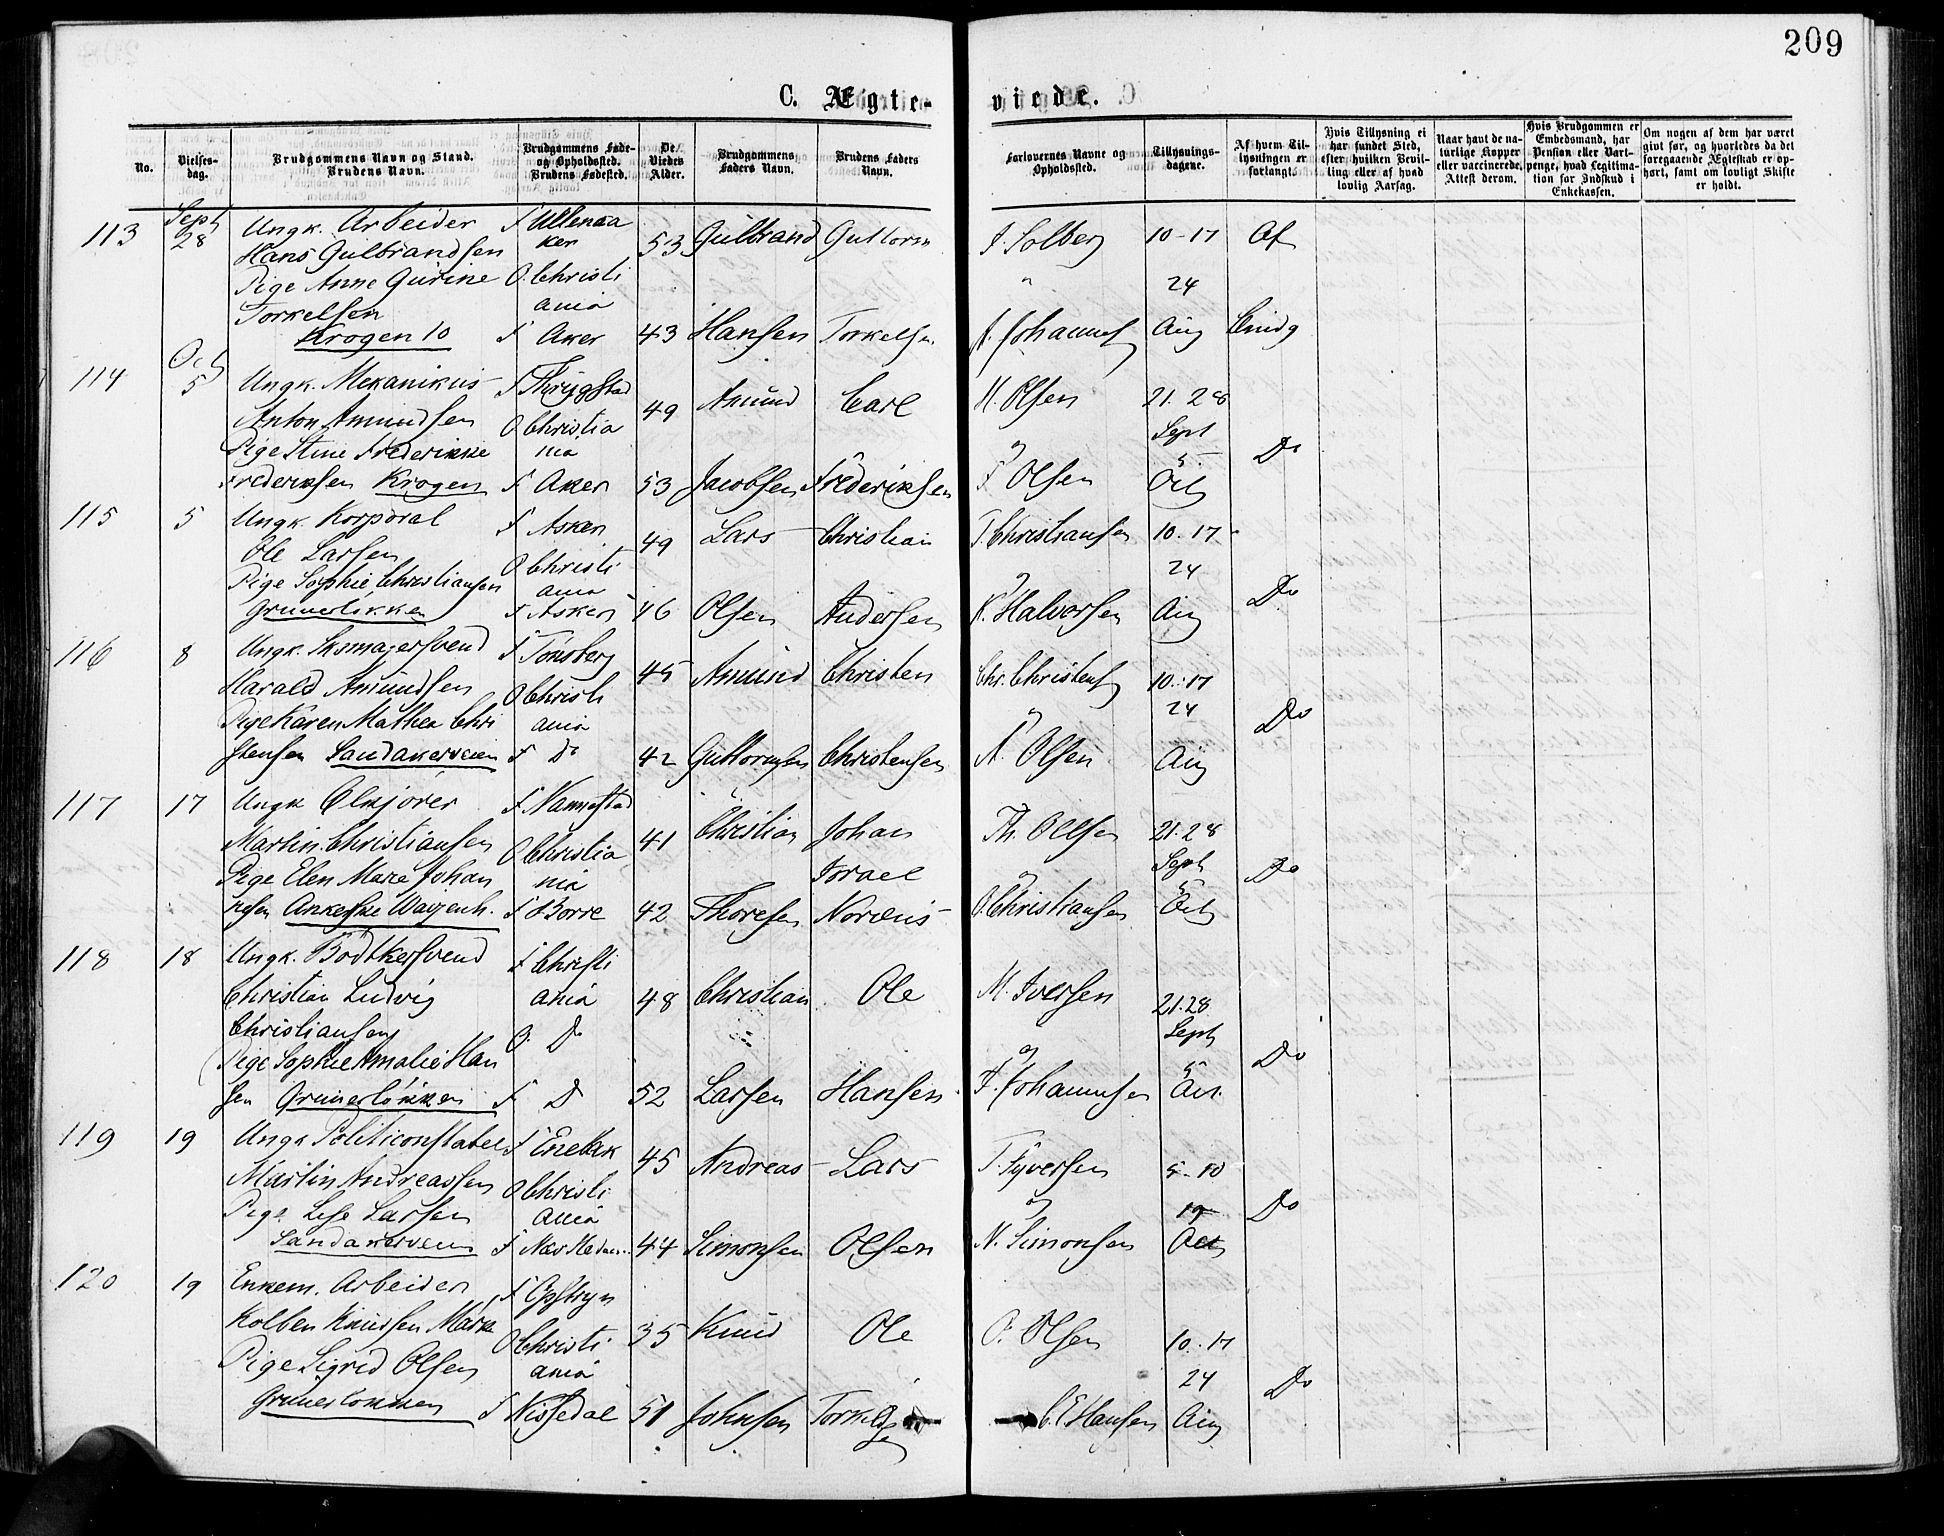 209
C. Ægte-
viede.
No.
Vielses-
dag.
Brudgommens Navn og Stand.
Brudens Navn.
Brudgommens Føde-
og Opholdssted.
Brudens Fødested.
De
Viedes
Alder.
Brudgommens
Faders Navn.
Brudens Faders
Navn.
Forlovernes Navne og
Opholdssted.
Tillysnings-
dagene.
Af hvem Til-
lysningen er
forlangt.
Hvis Tillysning ei
har fundet Sted,
efter hvilken Bevil-
ling eller af hvad
lovlig Aarsag.
Naar havt de na-
turlige Kopper
eller vaccinerede.
Attest derom.
Hvis Brudgommen er
Embedsmand, har
Pension eller Vart-
penge, hvad Legitima-
tion for Indskud i
Enkekassen.
Om nogen af dem har været
givt før, og hvorledes da det
foregaaende Ægteskab er op-
hørt, samt om lovligt Skifte
er holdt.
113
Sept
28
Ungk. Arbeider
Hans Gulbrandsen
Pige Anne Gurine
Torkelsen
Krogen 10
F Ullensa
ker
O. Christi
ania
F Aker
53
43
Gulbrand
Hansen
Guttorm
Torkelsen
J. Solberg
"
A. Johannes
10-17
24
Aug
Af
114
Oct
5
Ungk. Mekanikus
Anton Amundsen
Pige Stine Frederikke
Frederiksen Krogen
F Thrygstad
O Christia
nia
F Aker
49
53
Amund
Jacobsen
Carl
Frederiksen
H. Olsen
og
F Olsen
21. 28
Sept
5
Oct
Do
115
5
Ungk. Korporal
Ole Larsen
Pige Sophie Christiansen
Grunerløkken
F Asker
O Christi
ania
F Asker
49
46
Lars
Olsen
Christian
Andersen
T. Christiansen
og
K. Halvorsen
10. 17
24
Aug
Do
116
8
Ungk. Skomagersvend
Harald Amundsen
Pige Karen Mathea Chri
stensen Sandakerveien
F Tønsberg
O Christi
ania
F Do
45
42
Amund
Guttormsen
Christen
Christensen
Chr. Christens
og
A. Olsen
10.-17
24
Aug
Do
117
17
Ungk
Martin Christiansen
Pige Elen Marie Johan
nesen Ankerske Waisenh.
F Nannestad
O Christia
nia
F Borre
41
42
Christian
Thoresen
Johan
Israel
Th. Olsen
og
O. Christiansen
21. 28
Sept
5
Oct
Do
118
18
Ungk. Bødtkersvend
Christian Ludvig
Christiansen
Pige Sophie Amalie Han
sen Grunerløkken
F Christi
ania
O. Do
F Do
48
52
Christian
Larsen
Ole
Hansen
M. Iversen
og
F. Johannesen
21. 28
Sept
5
Oct.
Do
119
19
Ungk Politiconstabel
Martin Andreassen
Pige Lise Larsen
Sandakerveien
F Enebak
O Christi
ania
F
45
44
Andreas
Simonsen
Lars
Olsen
T. Syversen
og
N. Simonsen
5-10
19
Oct
Do
120
19
Enkem. Arbeider
Kolben Knudsen Mørk
Pige Sigrid Olsen
Grunerløkken
F Opstryn
O Christi
ania
F Nissedal
35
51
Knud
Johnsen
Ole
Torkelsen
O. Olsen
C. E. Hansen
10.-17
24
Aug
Do